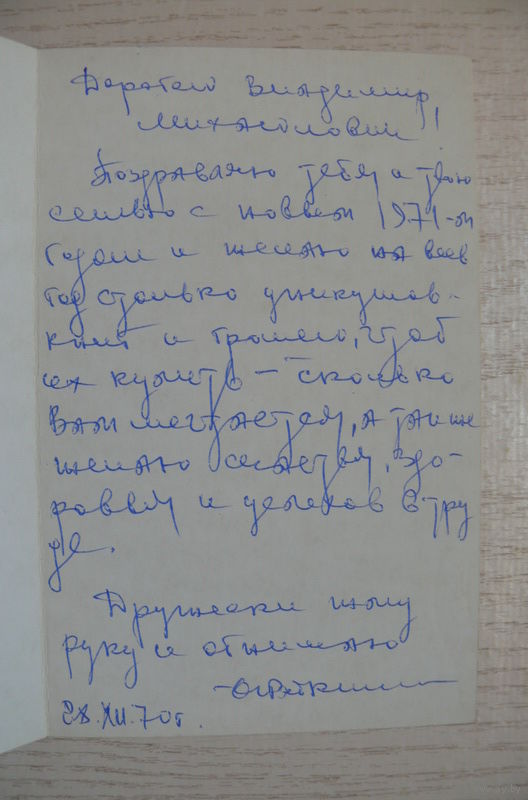 Дорогой Владимир
Михайлович!
Поздравляю тебя и твою
семью с новым 1971-м
годом и желаю на весь
год столько уникумов-
книг и грошей, чтоб
их купить – сколько
Вам мечтается, а также
желаю счастья, здо-
ровья и успехов в тру
де.
Дружески жму
руку и обнимаю
28.XII.70г.